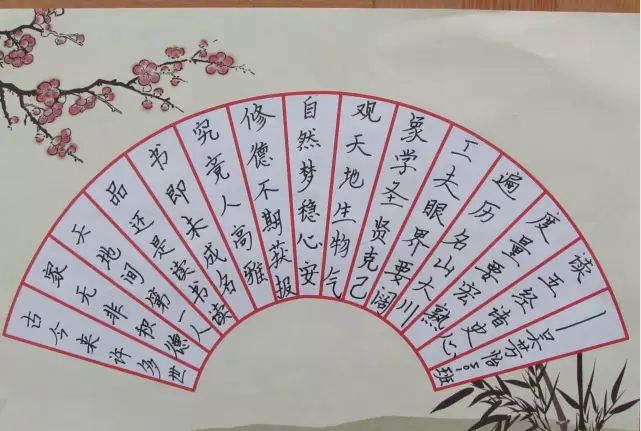 古今来许多世
家无非积德
天地间第一人
品还是读书读
书即未成名
究竟人高雅
修德不期获报
自然梦稳心安
观天地生物气
象学圣贤克己
工夫眼界要阔
遍历名山大川
度量要宏熟
读五经诸史
吴芳怡
班